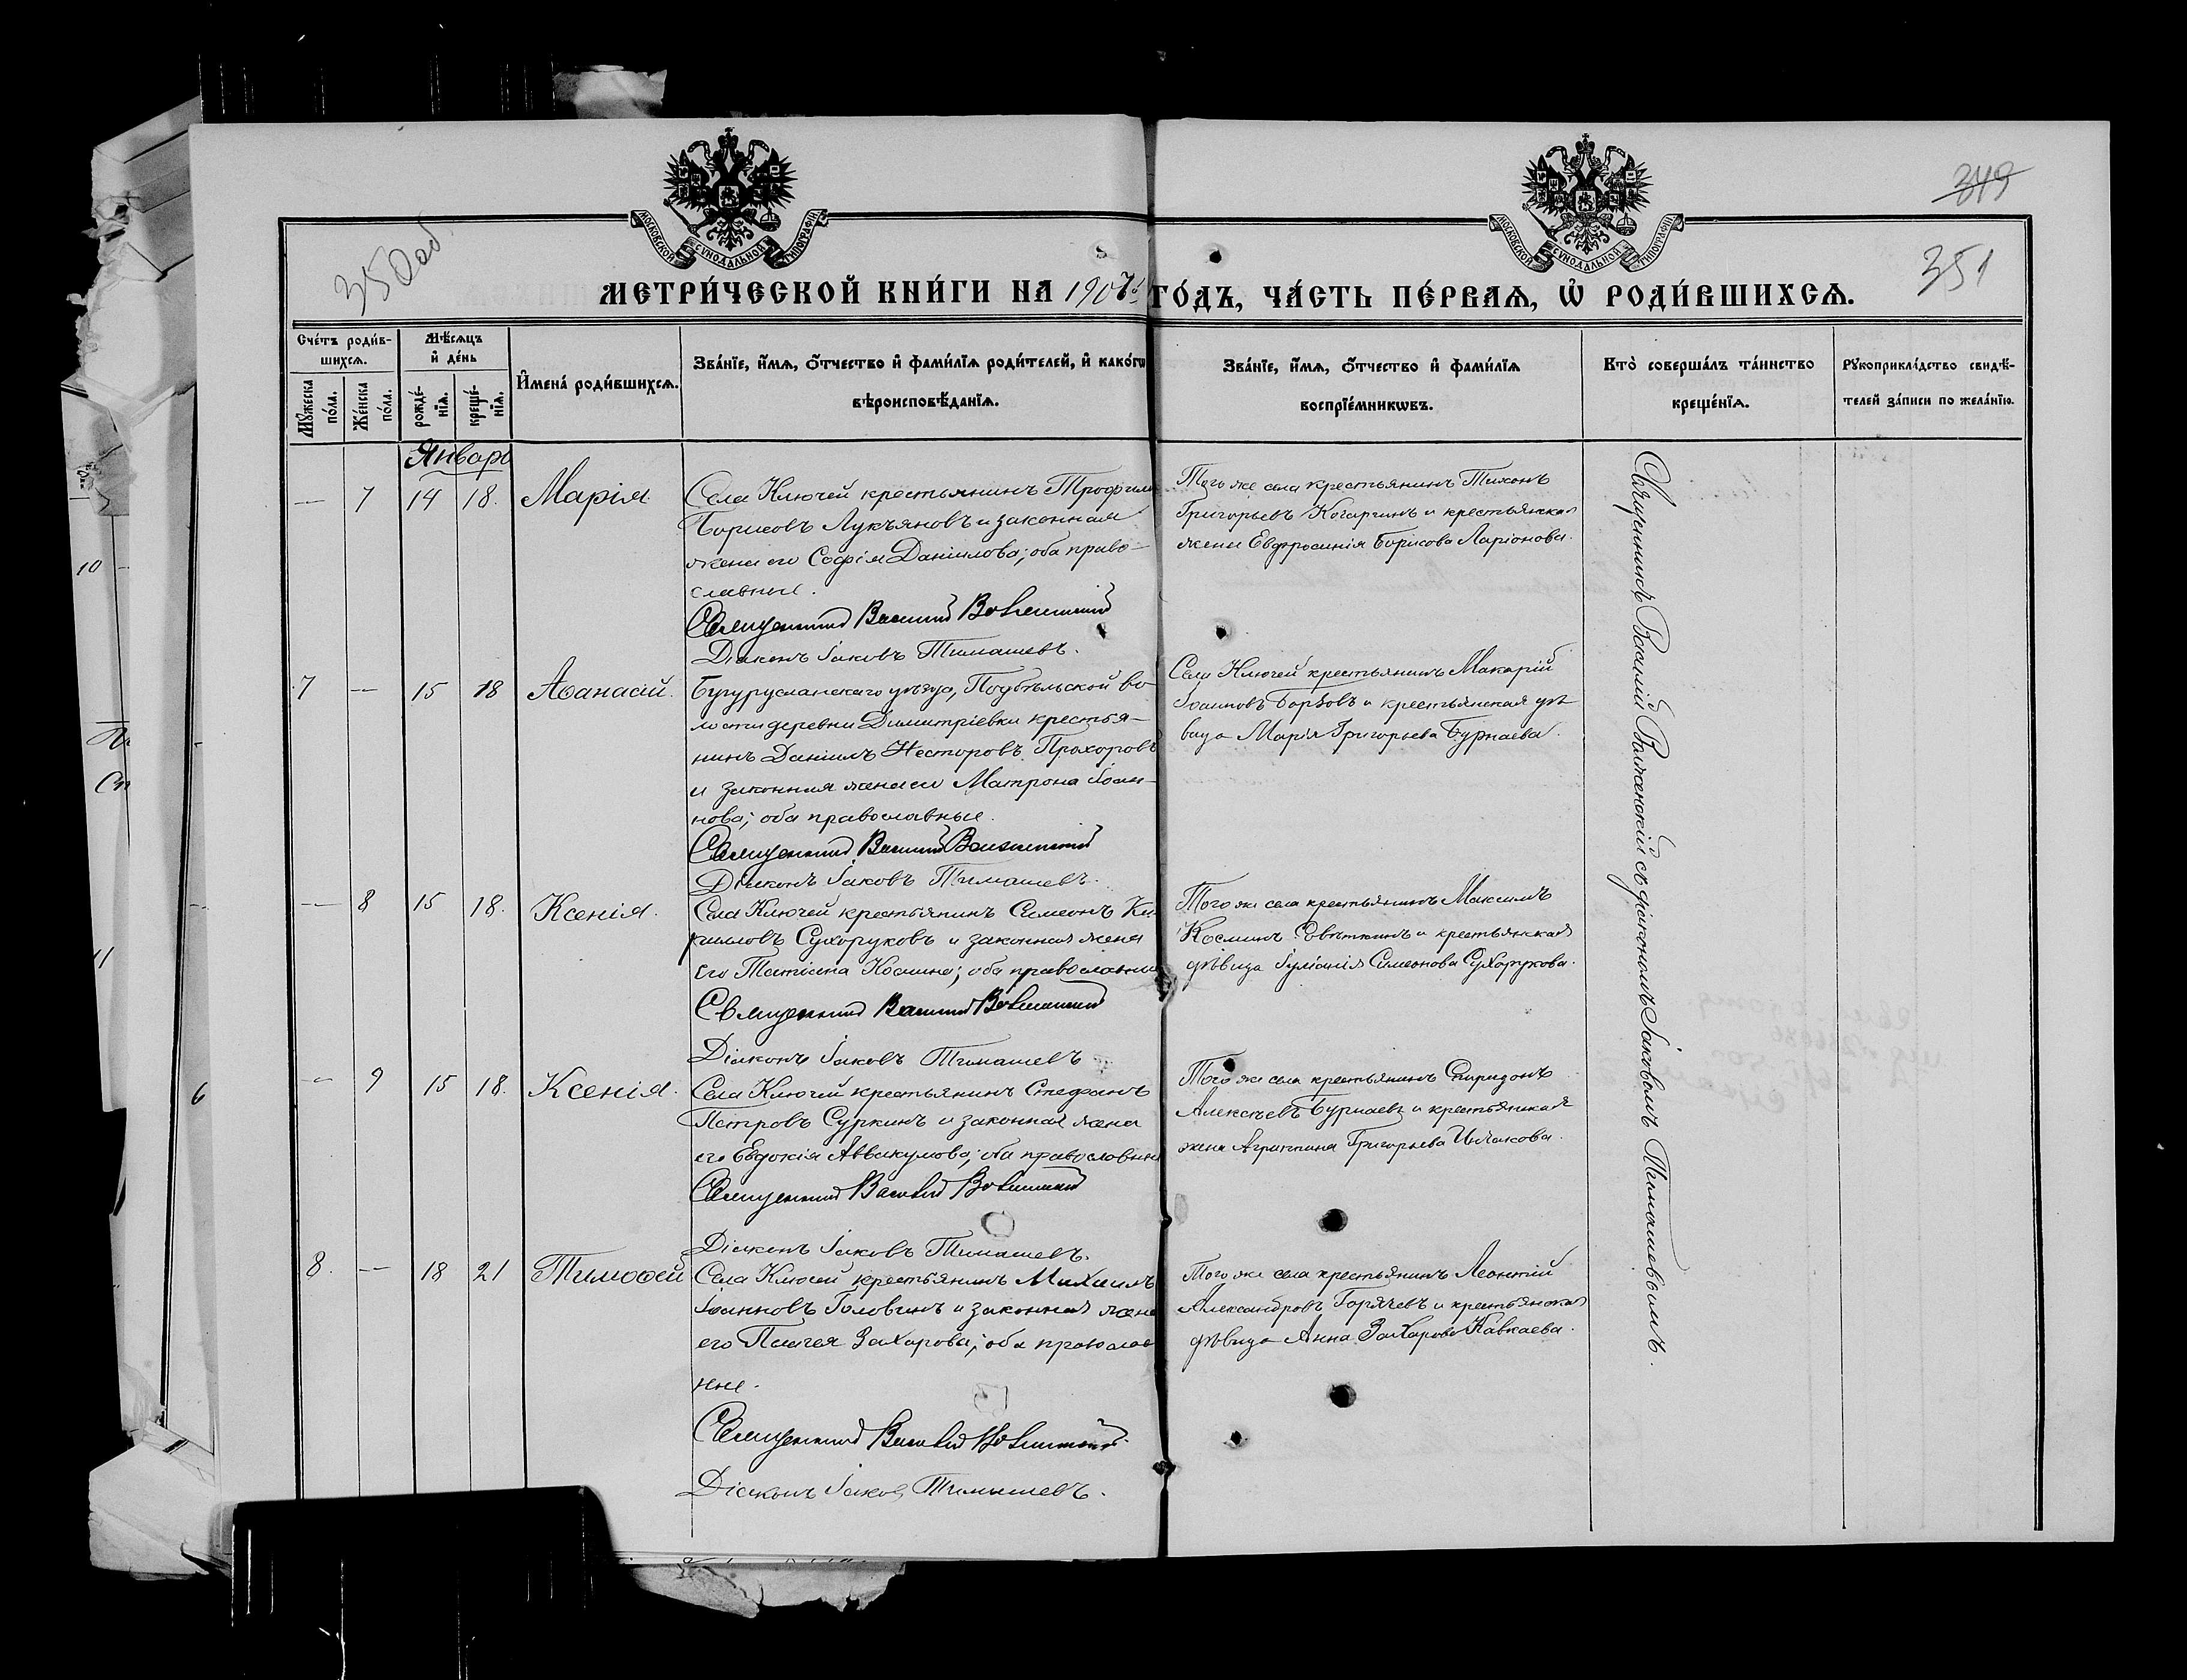 МОСКОВСКОЙ СѴНОДАЛЬНОЙ ТИПОГРАФІИ
МОСКОВСКОЙ СѴНОДАЛЬНОЙ ТИПОГРАФІИ
349
350 об
351
МЕТРИ́ЧЕСКОЙ КНИ́ГИ НА 1907й ГО́ДЪ, ЧА́СТЬ ПЕ́РВАѦ, Ѡ҆ РОДИ́ВШИХСѦ.
Сче́тъ роди́в-
шихсѧ.
Мꙋ́жеска по́ла.
Же́нска по́ла.
Мѣ́сѧцъ
и҆ де́нь
рожде́-
нїѧ.
креще́-
нїѧ.
И҆мена̀ роди́вшихсѧ.
Зва́нїе, и҆́мѧ, ѻ҆́тчество и҆ фами́лїѧ роди́телей, и҆ како́гѡ
вѣроисповѣ́данїѧ.
Зва́нїе, и҆́мѧ, ѻ҆́тчество и҆ фами́лїѧ
воспрїе́мникѡвъ.
Кто̀ соверша́лъ та́инство
креще́нїѧ.
Рꙋкоприкла́дство свидѣ́-
телей за́писи по жела́нїю.
Январь
— 7 14 18. Марія.
Села Ключей крестьянинъ Трофимъ
Борисовъ Лукъяновъ и законная
жена его Софія Даніилова; оба право-
славные.
Священникъ Василій
Діаконъ Іаковъ Тимашевъ.
Того же села крестьянинъ Тихонъ
Григорьевъ Когаргинъ и крестьянская
жена Евфросинія Борисова Ларіонова.
7 — 15 18 Аѳанасій.
Бугурусланскаго уѣзда, Подбѣльской во-
лости деревни Димитріевки крестья-
нинъ Даніилъ Несторовъ Прохоровъ
и законная жена его Матрона Іоан-
нова; оба православные.
Священникъ Василій
Діаконъ Іаковъ Тимашевъ.
Села Ключей крестьянинъ Макарій
Іоанновъ Борзовъ и крестьянская дѣ-
вица Марія Григорьева Бурнаева.
— 8 15 18. Ксенія.
Села Ключей крестьянинъ Симеонъ Ки-
рилловъ Сухоруковъ и законная жена
его Татіана Космина; оба православные
Священникъ Василій
Діаконъ Іаковъ Тимашевъ
Того же села крестьянинъ Максимъ
Косминъ Совѣткинъ и крестьянская
дѣвица Іуліанія Симеонова Сухорукова.
— 9 15 18. Ксенія.
Села Ключей крестьянинъ Стефанъ
Петровъ Суркинъ и законная жена
его Евдокія Аввакумова; оба православные
Священникъ Василій
Діаконъ Іаковъ Тимашевъ.
Того же села крестьянинъ Спиридонъ
Алексѣевъ Бурнаевъ и крестьянская
жена Агриппина Григорьева
8. — 18 21 Тимоѳей
Села Ключей крестьянинъ Михаилъ
Іоанновъ Головинъ и законная жена
его Пелагея Захарова; оба православ-
ные.
Священникъ Василій
Діаконъ Іаковъ Тимашевъ.
Того же села крестьянинъ Леонтій
Александровъ Горячевъ и крестьянская
дѣвица Анна Захарова Кавкаева.
Священникъ Василій съ діакономъ Іаковомъ Тимашевымъ.